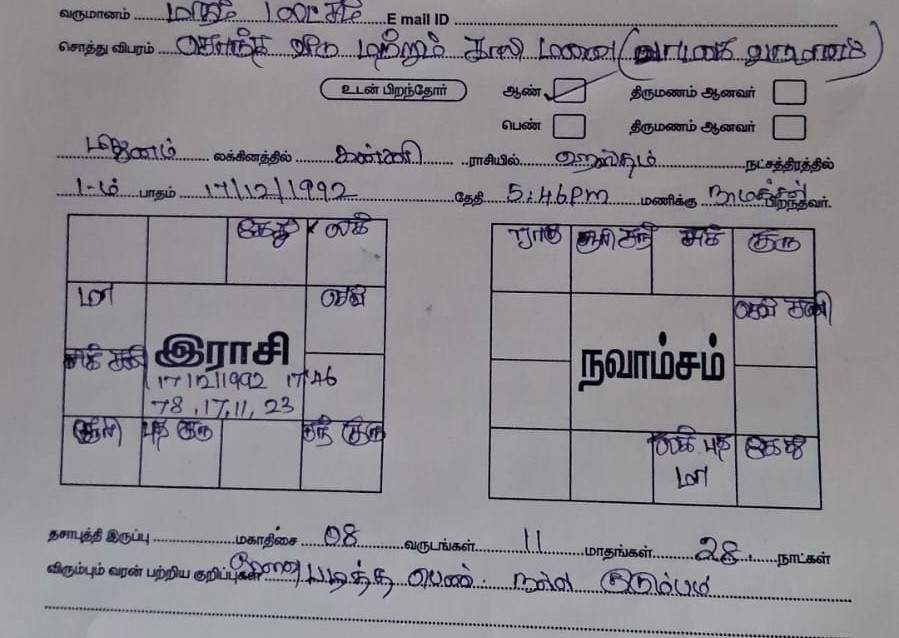 வருமானம் மாதம் 1 லட்சம் E mail ID
சொத்து விபரம் சொந்த வீடு மற்றும் காலி மனை
உடன் பிறந்தோர் ஆண் திருமணம் ஆனவர்
பெண் திருமணம் ஆனவர்
மிதுனம் லக்கினத்தில் கன்னி ராசியில் ஹஸ்தம் நட்சத்திரத்தில்
1-ம் பாதம் 17/12/1992 தேதி 5:46 PM மணிக்கு பிறந்தவர்.
கேது லக்
மா செவ்
சுக் சனி
சூரி புத ராகு சந் குரு
இராசி
17/12/1992 17:46
78, 17, 11, 23
ராகு சூரி சந் சுக் குரு
செவ் சனி
நவாம்சம்
லக் புத கேது
மா
தசாபுத்தி இருப்பு மகாதிசை 08 வருடங்கள் 11 மாதங்கள் 28 நாட்கள்
விரும்பும் வரன் பற்றிய குறிப்புகள் படித்த பெண். நல்ல குடும்பம்